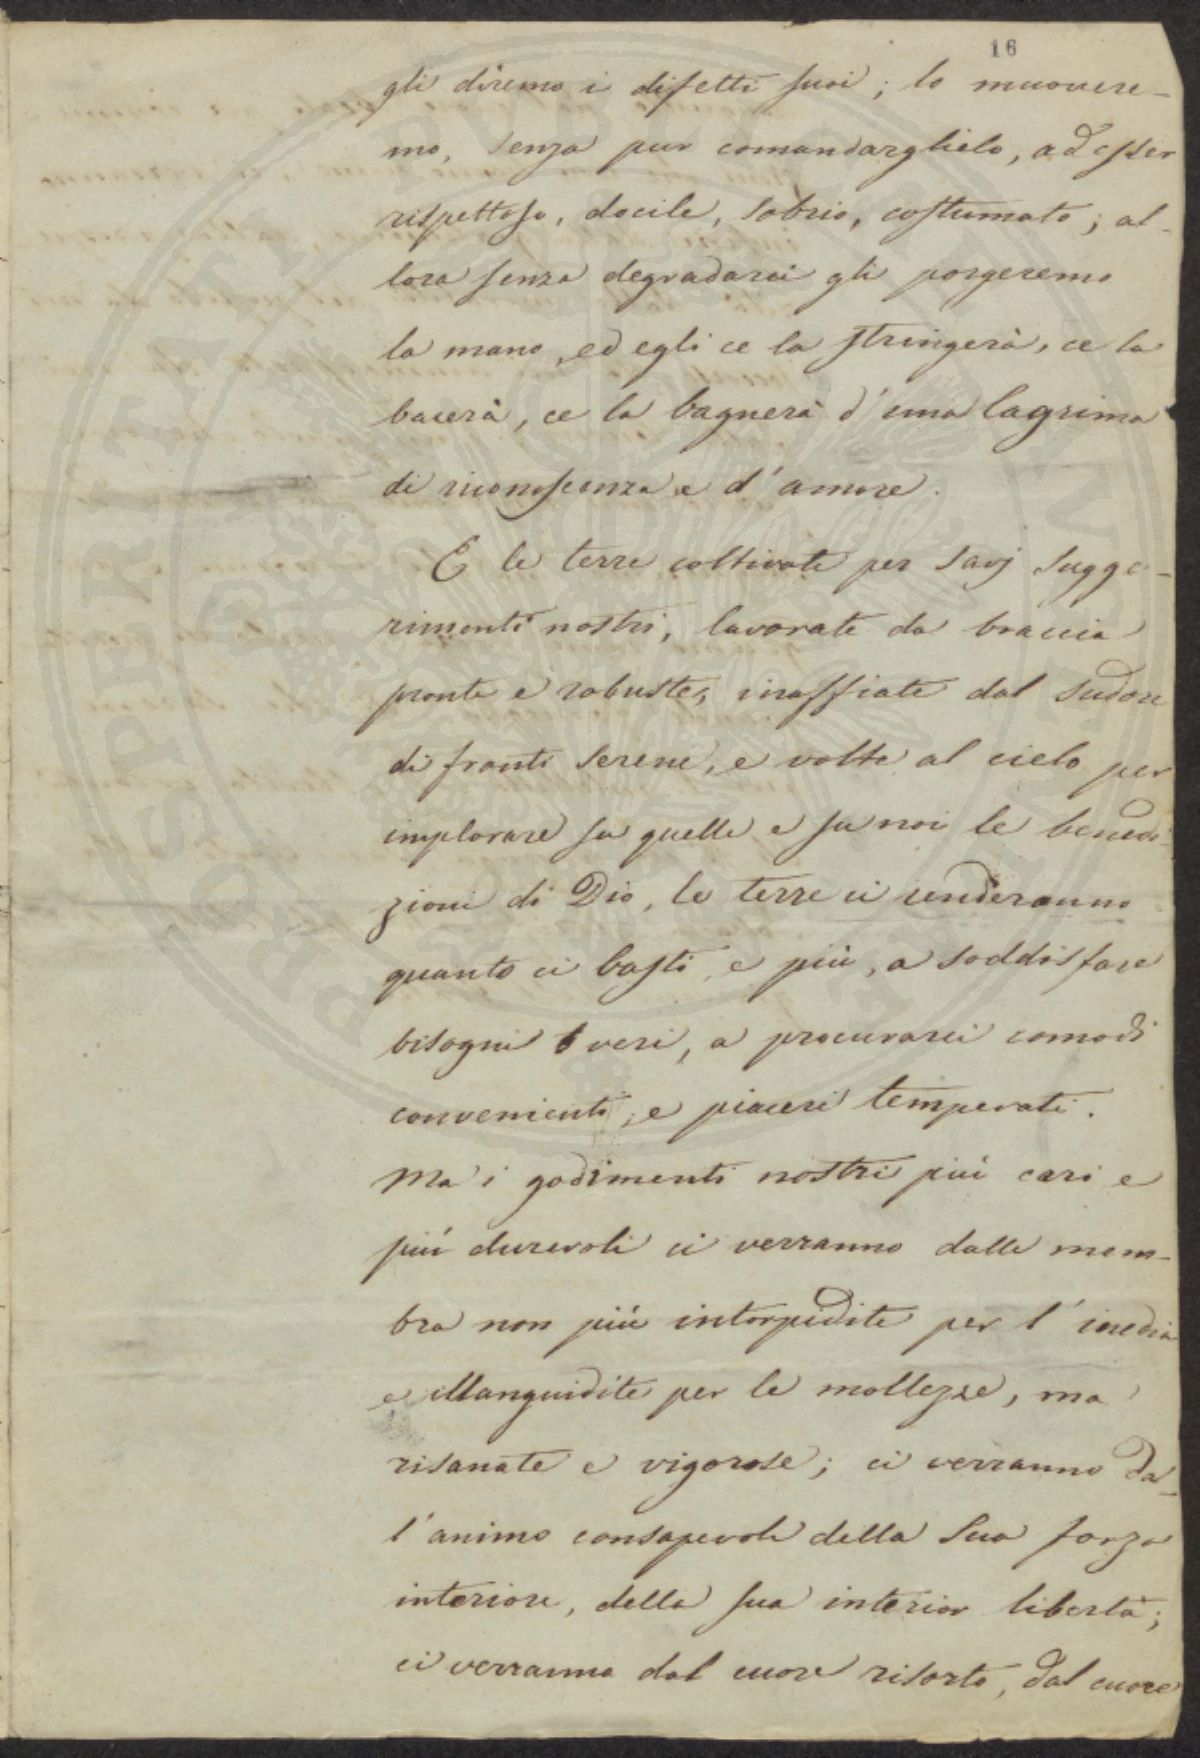 16
gli diremo i difetti suoi; lo muovere-
mo, senza pur comandarglielo, ad esser
rispettoso, docile, sobrio, costumato; al-
lora senza degradarci gli porgeremo
la mano, ed egli ce la stringerà, ce la
bacerà, ce la bagnerà d'una lagrima
di riconoscenza e d'amore.
E le terre coltivate per savj sugge-
rimenti nostri, lavorate da braccia
pronte e robuste, inaffiate dal sudore
di fronti serene, e volte al cielo per
implorare su quelle e su noi le benedi-
zioni di Dio, le terre ci renderanno
quanto ci basti, e più, a soddisfare
bisogni veri, a procurarci comodi
convenienti, e piaceri temperati.
Ma i godimenti nostri più cari e
più durevoli ci verranno dalle mem-
bra non più intorpidite per l'inedia
e illanguidite per le mollezze, ma
risanate e vigorose; ci verranno da-
l'animo consapevole della sua forza
interiore, della sua interior libertà;
ci verranno dal cuore risorto, dal cuore
PROSPERITATI PUBLICAE